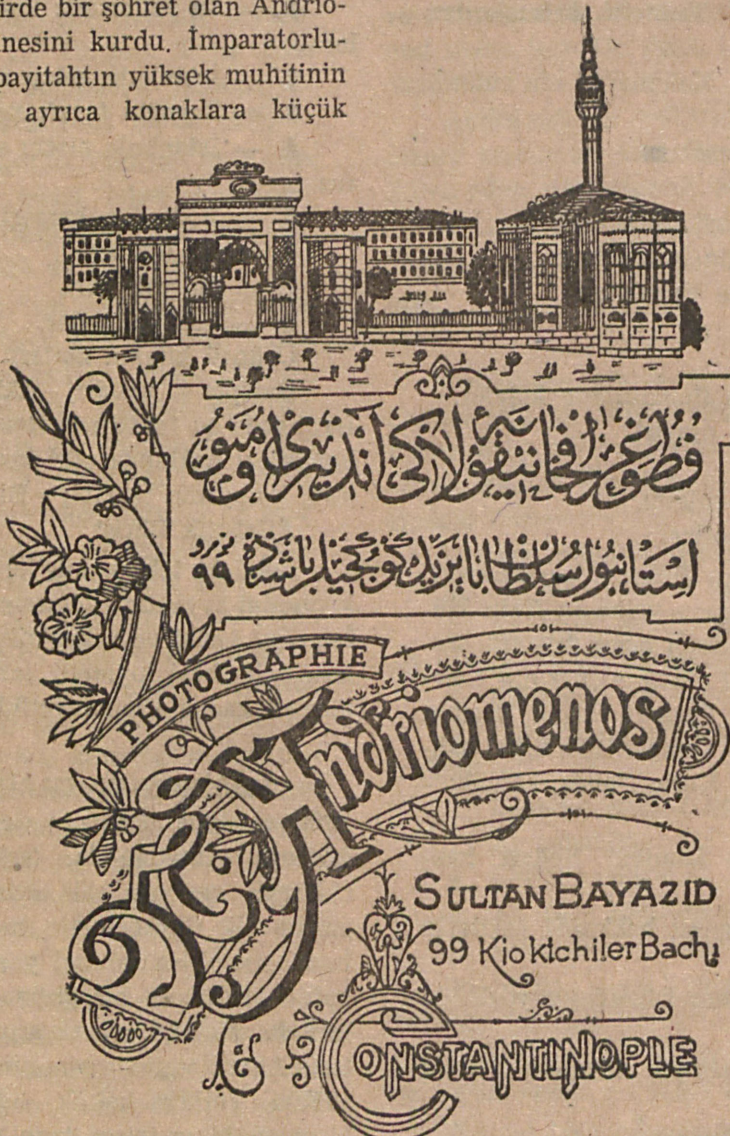 irde bir şöhret olan Andrio-
nesini kurdu. İmparatorlu-
payitahtın yüksek muhitinin
ayrıca konaklara küçük
فطوغرافخانهٔ نیقولاکی آندریومنو
استانبول سلطان بایزید کوکجیلر باشنده نومرو ٩٩
PHOTOGRAPHIE
Andriomenos
SULTAN BAYAZID
99 Kioktchiler Bachi
CONSTANTINOPLE